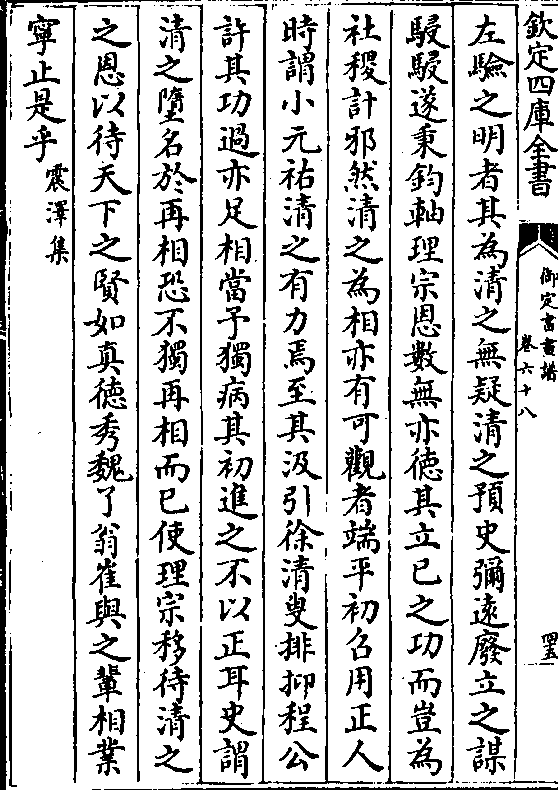 欽定四庫全書
御定書畫譜
卷六十八
四五
左驗之明者其為清之無疑清之預史彌遠廢立之謀
駸駸遂秉鈞軸理宗恩數無亦徳其立已之功而豈為
社稷計邪然清之為相亦有可觀者端平初召用正人
時謂小元祐清之有力焉至其汲引徐清叟排抑程公
許其功過亦足相當予獨病其初進之不以正耳史謂
清之墮名於再相恐不獨再相而已使理宗移待清之
之恩以待天下之賢如真徳秀魏了翁崔與之輩相業
寧止是乎震澤集